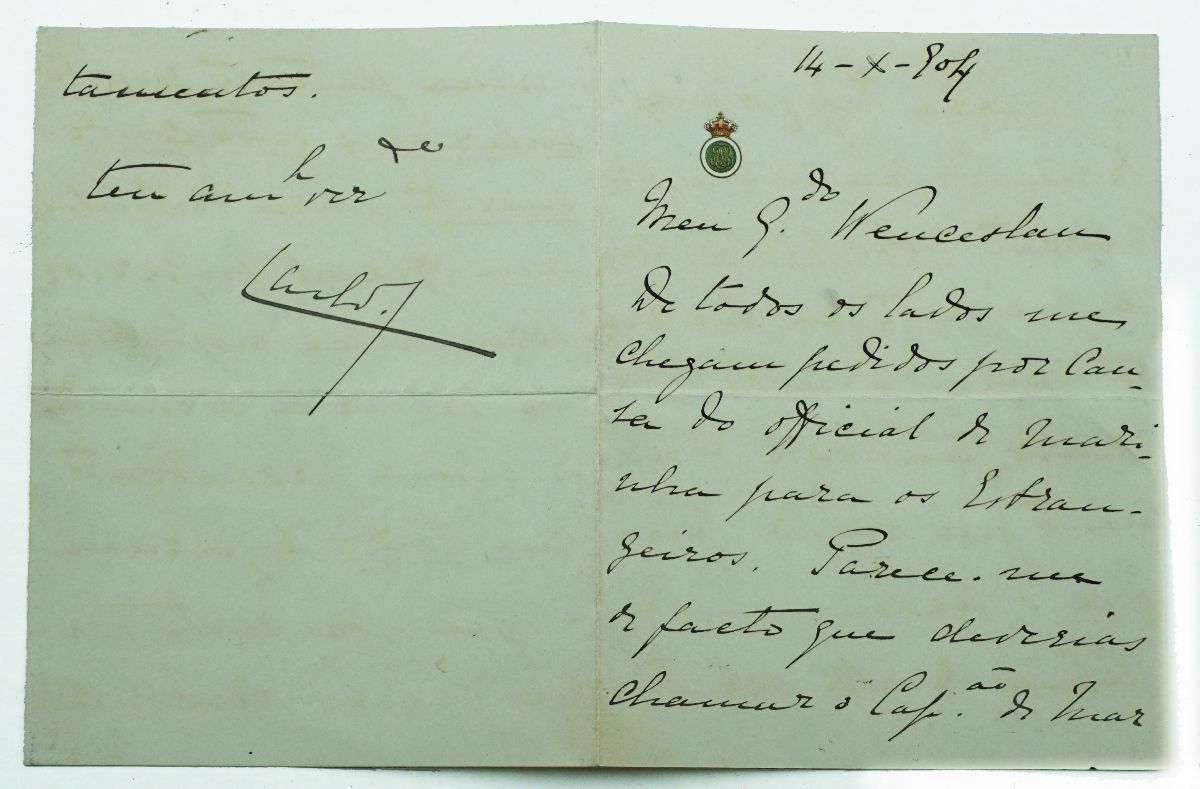 14-X-904
Meu G.do Wenceslau
De todos os lados me
chegam pedidos por cau-
sa do official de mari-
nha para os Estran-
geiros. Parece-me
de facto que deverias
chamar o Cap.ão de Mar
tamentos.
teu am
Carlos.